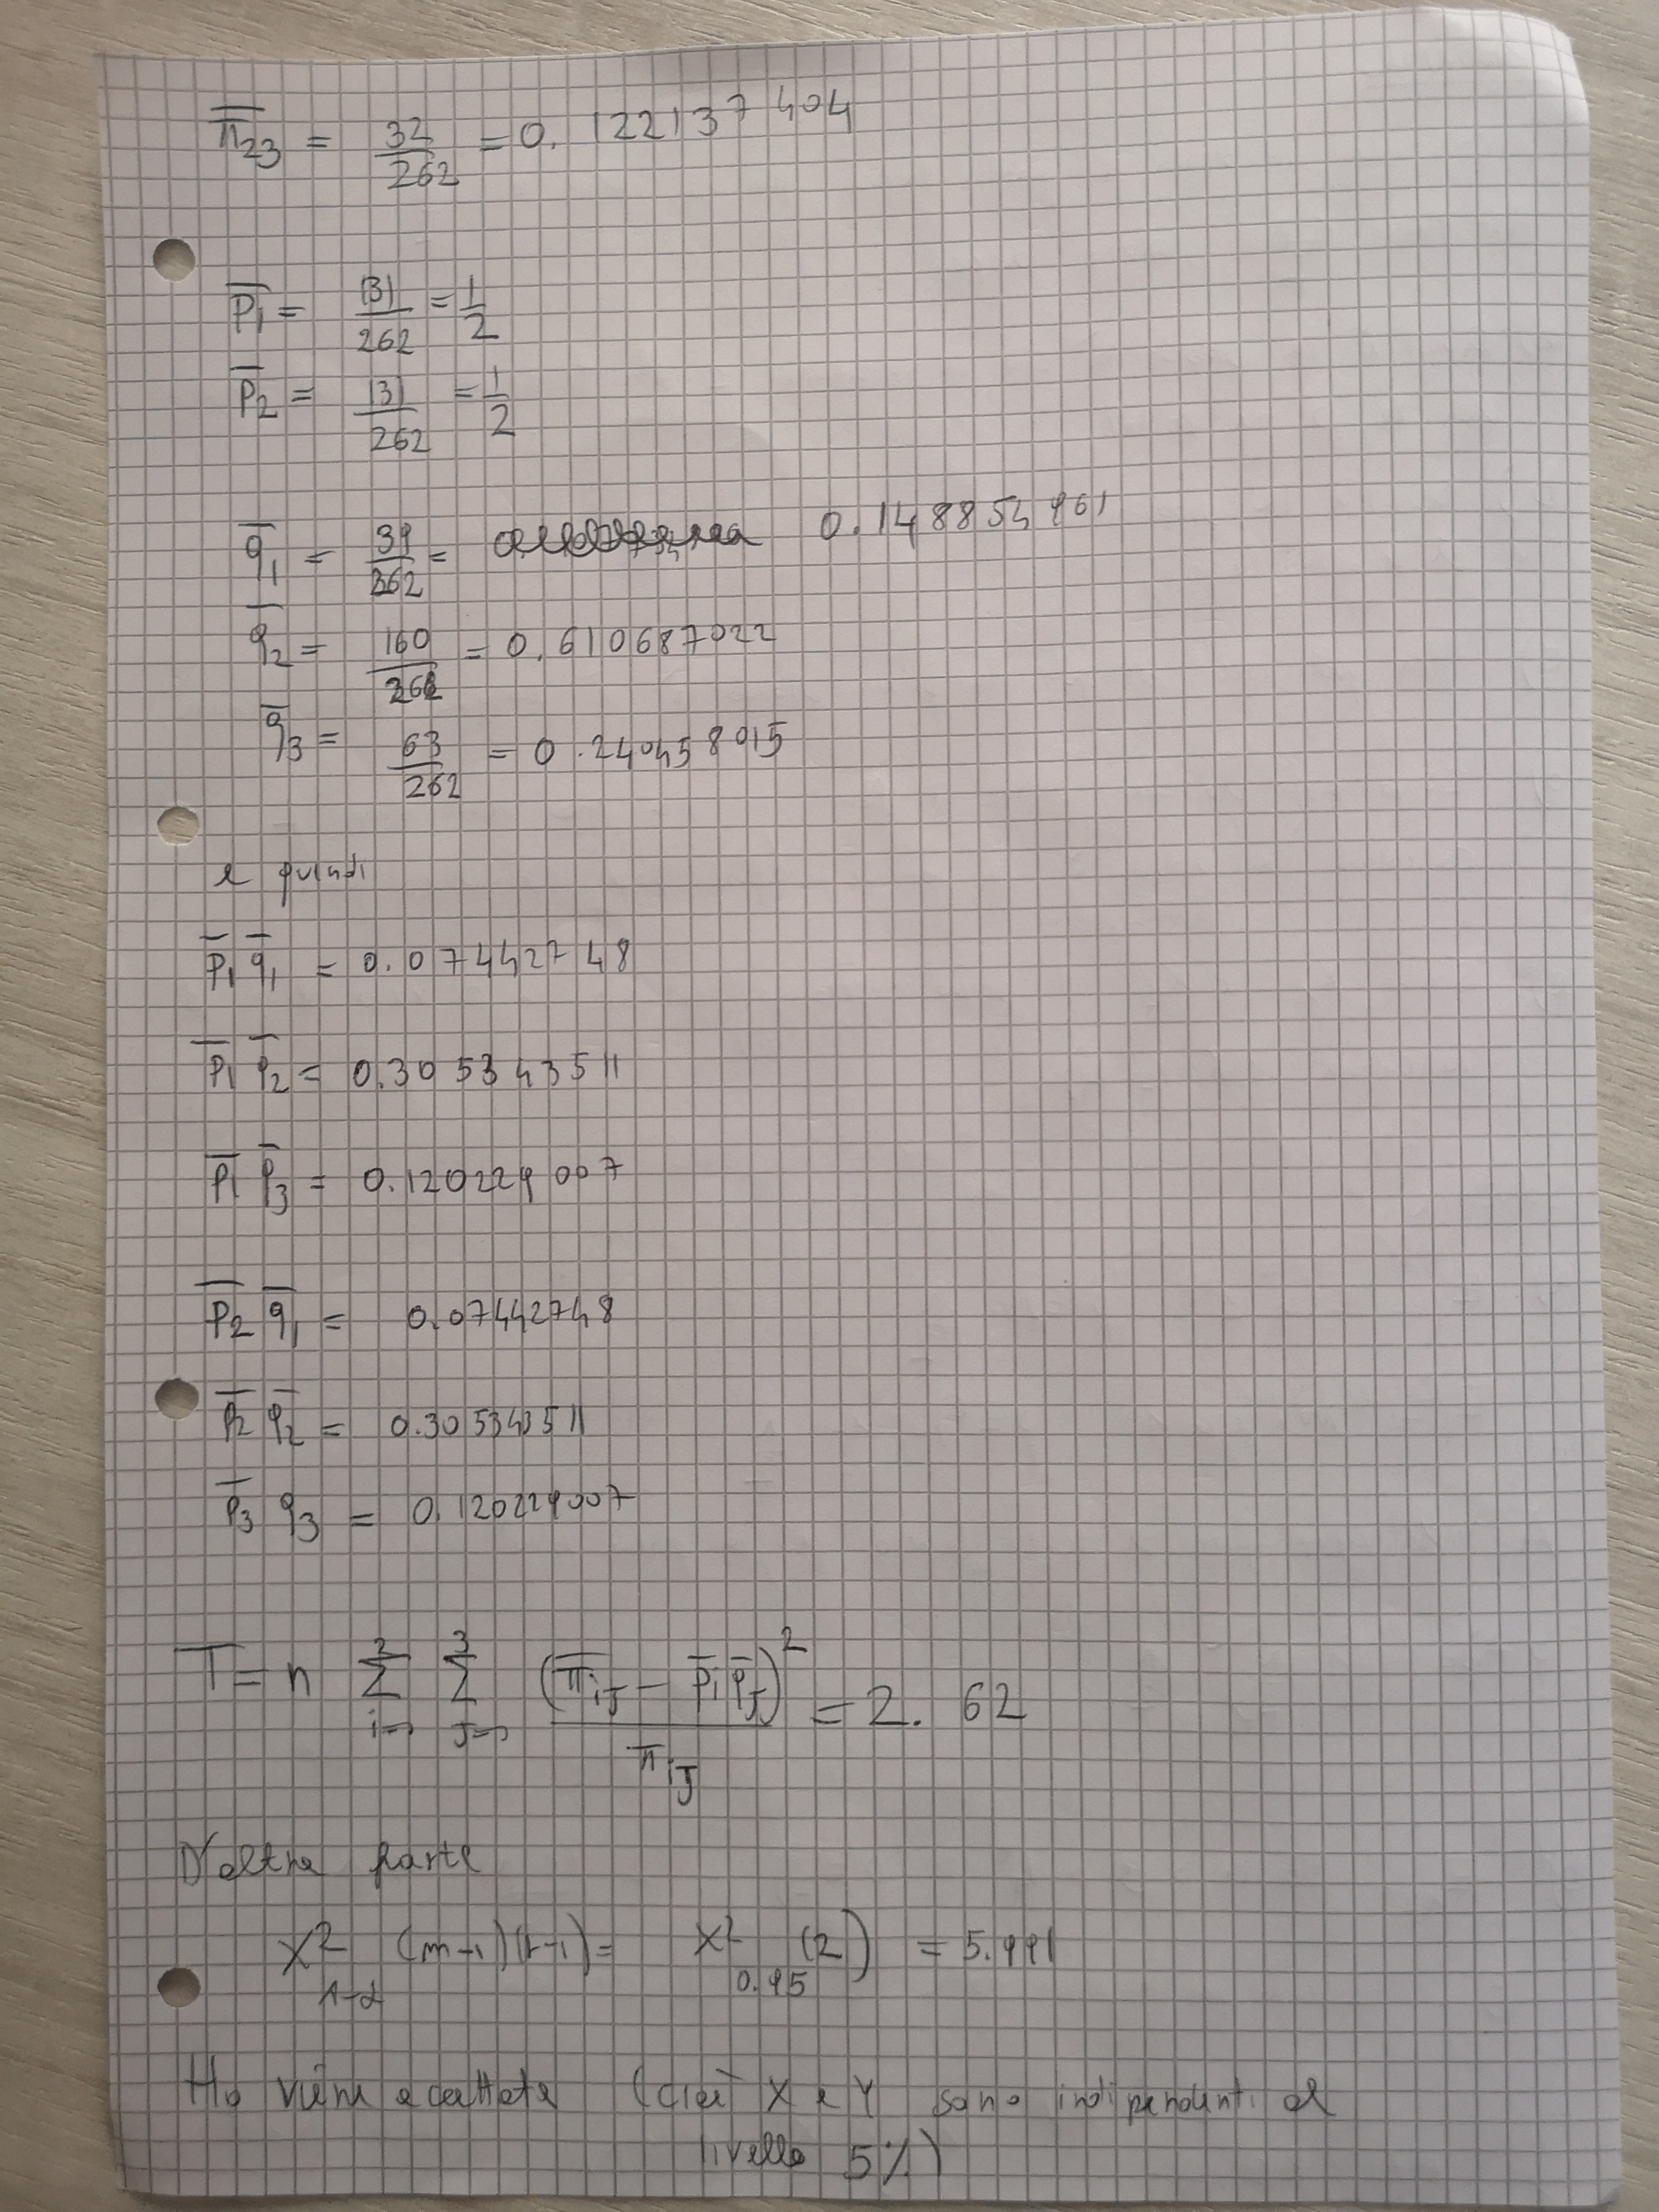 π̄₂₃ = 32/262 = 0.122137404
p̄₁ = 131/262 = 1/2
p̄₂ = 131/262 = 1/2
q̄₁ = 39/262 = 0.148854961
q̄₂ = 160/262 = 0.610687022
q̄₃ = 63/262 = 0.240458015
e quindi
p̄₁ q̄₁ = 0.07442748
p̄₁ q̄₂ = 0.305343511
p̄₁ q̄₃ = 0.120229007
p̄₂ q̄₁ = 0.07442748
p̄₂ q̄₂ = 0.305343511
p̄₃ q₃ = 0.120229007
T = n Σ²ᵢ₌₁ Σ³ⱼ₌₁ (π̄ᵢⱼ − p̄ᵢ q̄ⱼ)² / π̄ᵢⱼ = 2.62
D'altra parte
X²₁₋α (m-1)(r-1) = X²₀.₉₅ (2) = 5.991
H₀ viene accettata (cioè X e Y sono indipendenti al
livello 5%)